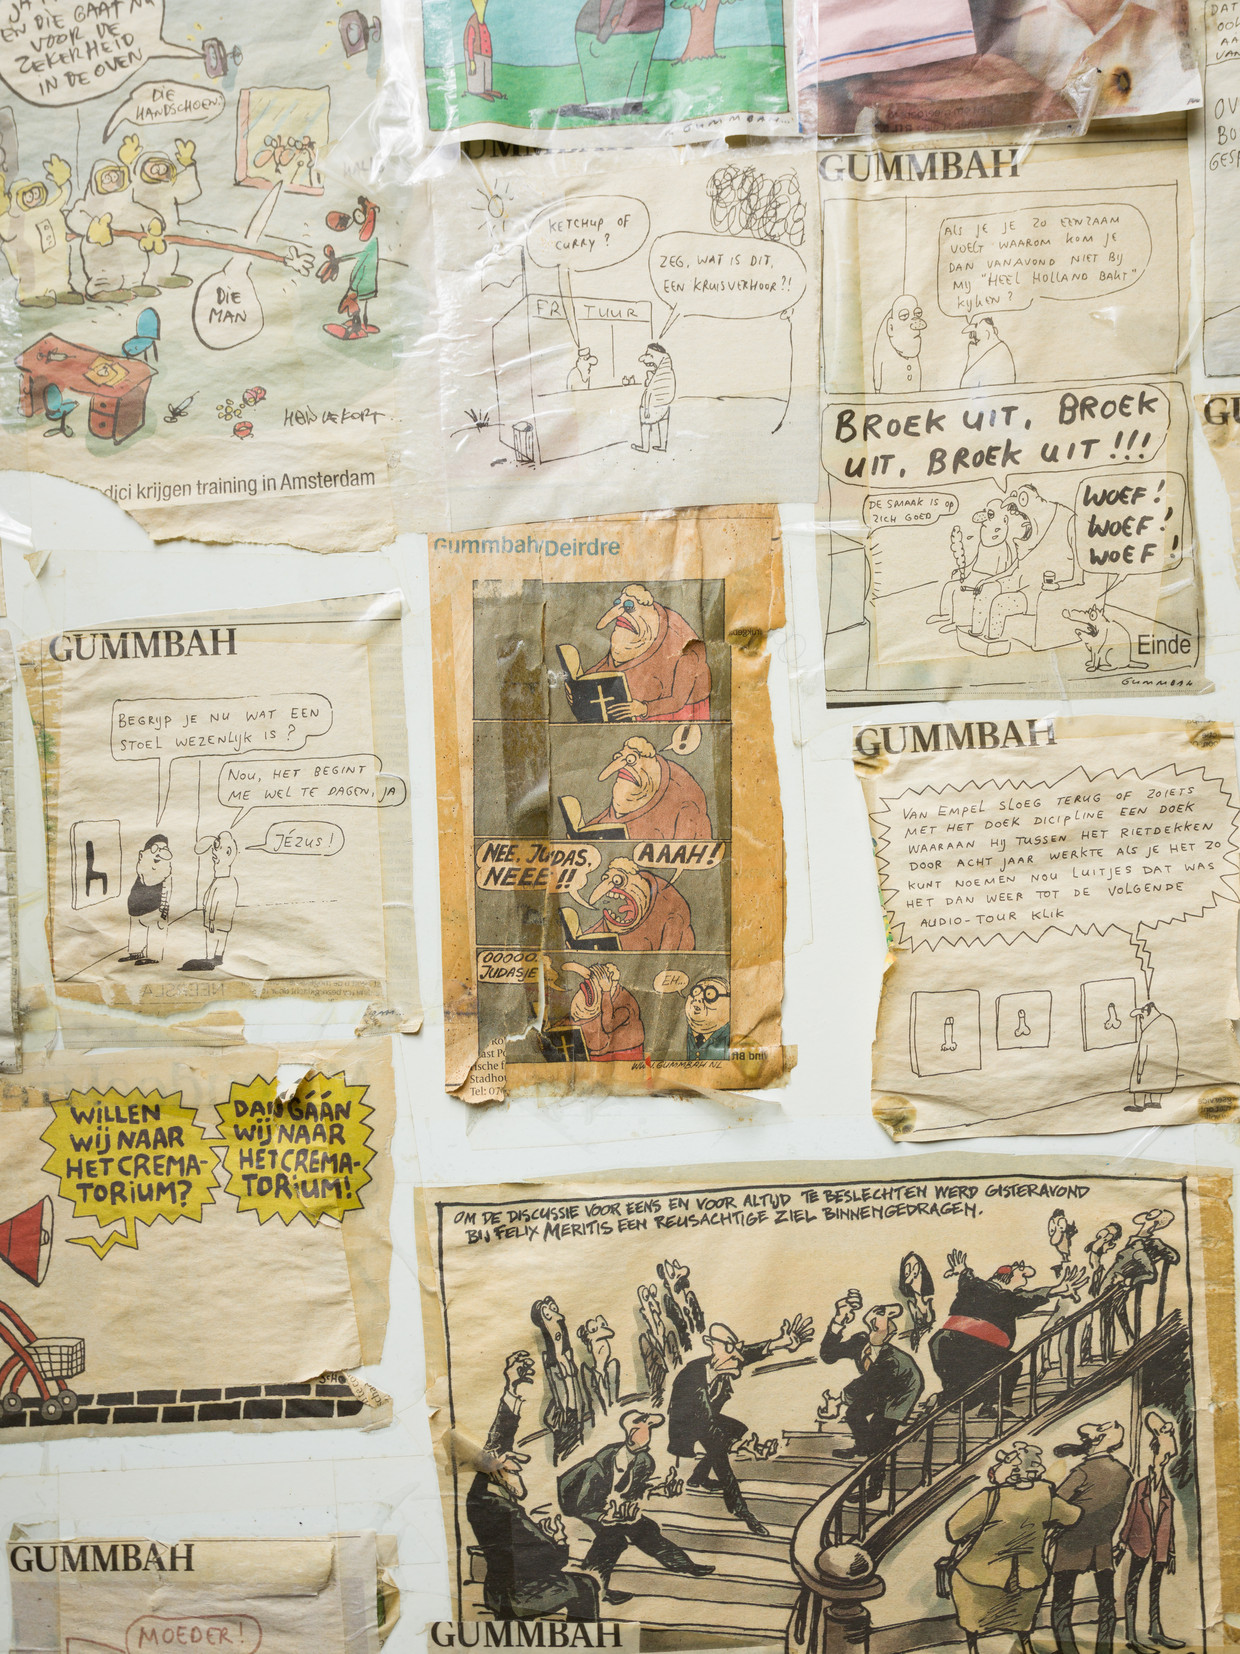 EN DIE GAAT NU
VOOR DE
ZEKERHEID
IN DE OVEN
DIE
HANDSCHOEN.
DIE
MAN
dici krijgen training in Amsterdam
GUMMBAH
KETCHUP OF
CURRY?
ZEG, WAT IS DIT,
EEN KRUISVERHOOR?!
FR TUUR
GUMMBAH
ALS JE JE ZO EENZAAM
VOELT WAAROM KOM JE
DAN VANAVOND NIET BIJ
MIJ "HEEL HOLLAND BAKT"
KIJKEN?
BROEK UIT, BROEK
UIT, BROEK UIT!!!
DE SMAAK IS OP
ZICH GOED
WOEF!
WOEF!
WOEF!
Einde
GUMMBAH
DAT
GU
GUMMBAH
BEGRIJP JE NU WAT EEN
STOEL WEZENLIJK IS?
NOU, HET BEGINT
ME WEL TE DAGEN, JA
JÉZUS!
Gummbah/Deirdre
!
NEE, JUDAS,
NEEE!!
AAAH!
OOOOO.
JUDASIE
EH...
ast
ische f
Stadhou
Tel: 076
WWW.GUMMBAH.NL
GUMMBAH
VAN EMPEL SLOEG TERUG OF ZOIETS
MET HET DOEK DICIPLINE EEN DOEK
WAARAAN HIJ TUSSEN HET RIETDEKKEN
DOOR ACHT JAAR WERKTE ALS JE HET ZO
KUNT NOEMEN NOU LUITJES DAT WAS
HET DAN WEER TOT DE VOLGENDE
AUDIO-TOUR KLIK
WILLEN
WIJ NAAR
HET CREMA-
TORIUM?
DAN GÁÁN
WIJ NAAR
HET CREMA-
TORIUM!
OM DE DISCUSSIE VOOR EENS EN VOOR ALTIJD TE BESLECHTEN WERD GISTERAVOND
BIJ FELIX MERITIS EEN REUSACHTIGE ZIEL BINNENGEDRAGEN.
GUMMBAH
MOEDER!
GUMMBAH